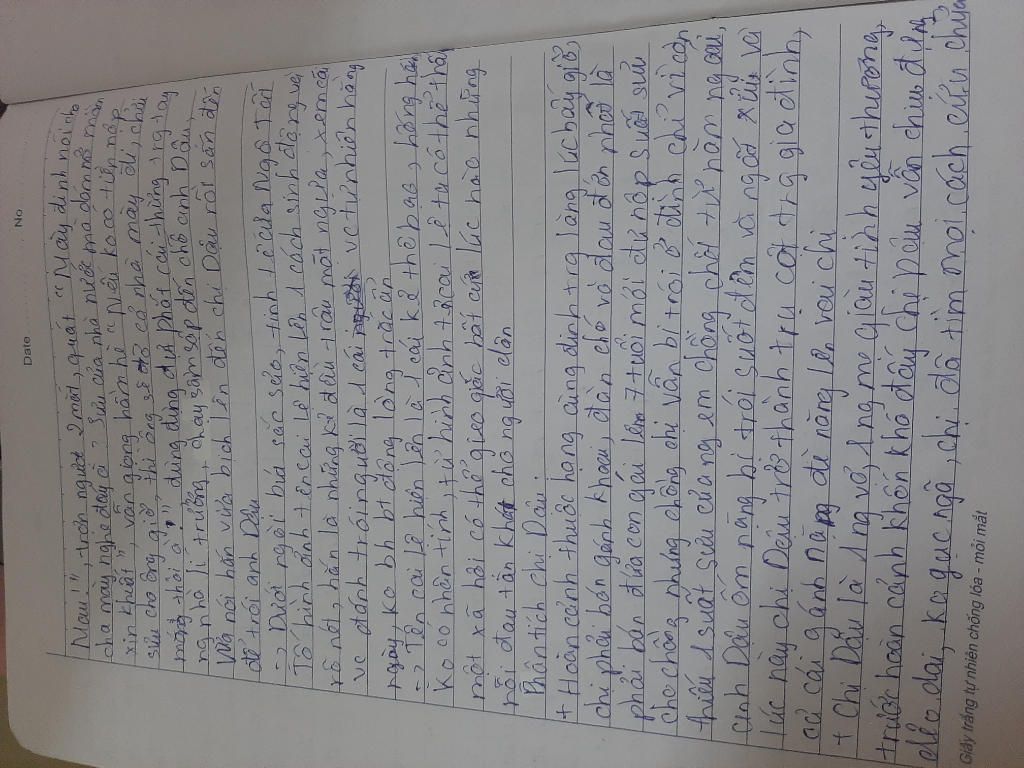 Date No
Mau!", trợn ngược 2 mắt, quát "Mày định nói cho
cha mày nghe đấy à? Sưu của nhà nước mà dám mở mồm
xin khất", vẫn giọng hầm hè "Nếu ko có tiền nộp
sưu cho ông giờ, thì ông sẽ dỡ cả nhà mày đi, chửi
mắng thôi à", đùng đùng giật phắt cái thừng trg tay
ng nhà lí trưởng, chạy sầm sập đến chỗ anh Dậu,
Vừa nói hắn vừa bịch lên đến chị Dậu rồi sấn đến
để trói anh Dậu
-> Dưới ngòi bút sắc sảo, tinh tế của Ngô Tất
Tố hình ảnh tên cai lệ hiện lên 1 cách sinh động và
rõ nét, hắn là những kẻ đầu trâu mặt ngựa, xem cái
vc đánh trói người là 1 cái vc tự nhiên hằng
ngày, ko hề bt động lòng trắc ẩn
-> Tên cai lệ hiện lên là 1 cái kẻ thô bạo, hống hách
ko có nhân tính, từ hình ảnh tên cai lệ ta có thể thấy
một xã hội có thể gieo rắc bất cứ lúc nào những
nỗi đau tàn khốc cho người dân
Phân tích chị Dậu:
+ Hoàn cảnh thuộc hạng cùng đinh trg làng lúc bấy giờ,
chị phải bán gánh khoai, đàn chó và đau đớn nhất là
phải bán đứa con gái lên 7 tuổi mới đủ nộp suất sưu
cho chồng nhưng chồng chị vẫn bị trói ở đình chỉ vì còn
thiếu 1 suất sưu của ng em chồng chết từ năm ngoái,
anh Dậu ốm nặng bị trói suốt đêm và ngất xỉu và
lúc này chị Dậu trở thành trụ cột trg gia đình,
cả cái gánh nặng đè nặng lên vai chị
+ Chị Dậu là 1 ng vợ, 1 ng mẹ giàu tình yêu thương,
trước hoàn cảnh khốn khó đấy chị Dậu vẫn chịu đựng,
dẻo dai, ko gục ngã, chị đã tìm mọi cách cứu chữa
Giấy trắng tự nhiên chống lóa - mỏi mắt